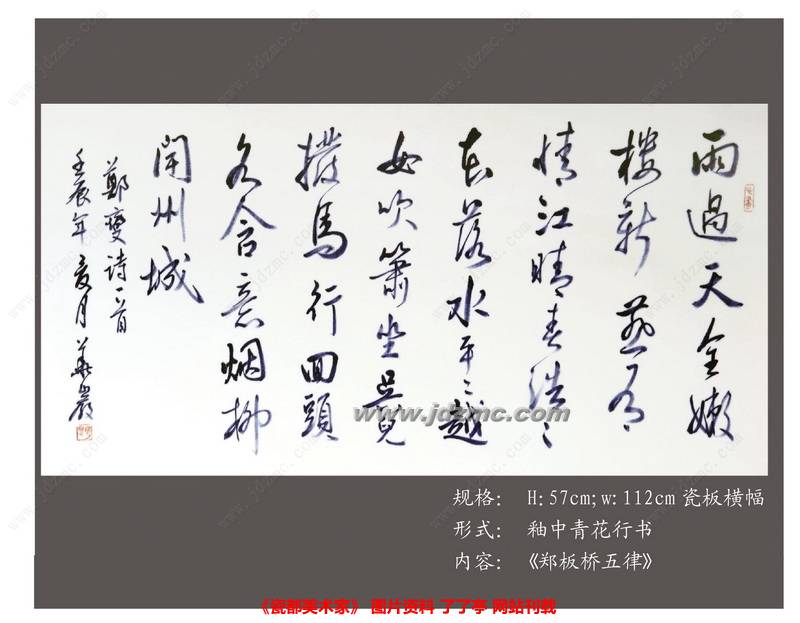 雨過天全嫩
樓新燕有
情江晴春浩〻
花落水平〻越
女吹簫坐吳兒
撥馬行回頭
各含意烟柳
開州城
鄭燮詩一首
壬辰年夏月華巖
www.jdzmc.com
规格: H:57cm;w:112cm瓷板横幅
形式: 釉中青花行书
内容: 《郑板桥五律》
《瓷都美术家》 图片资料 了了亭 网站刊载